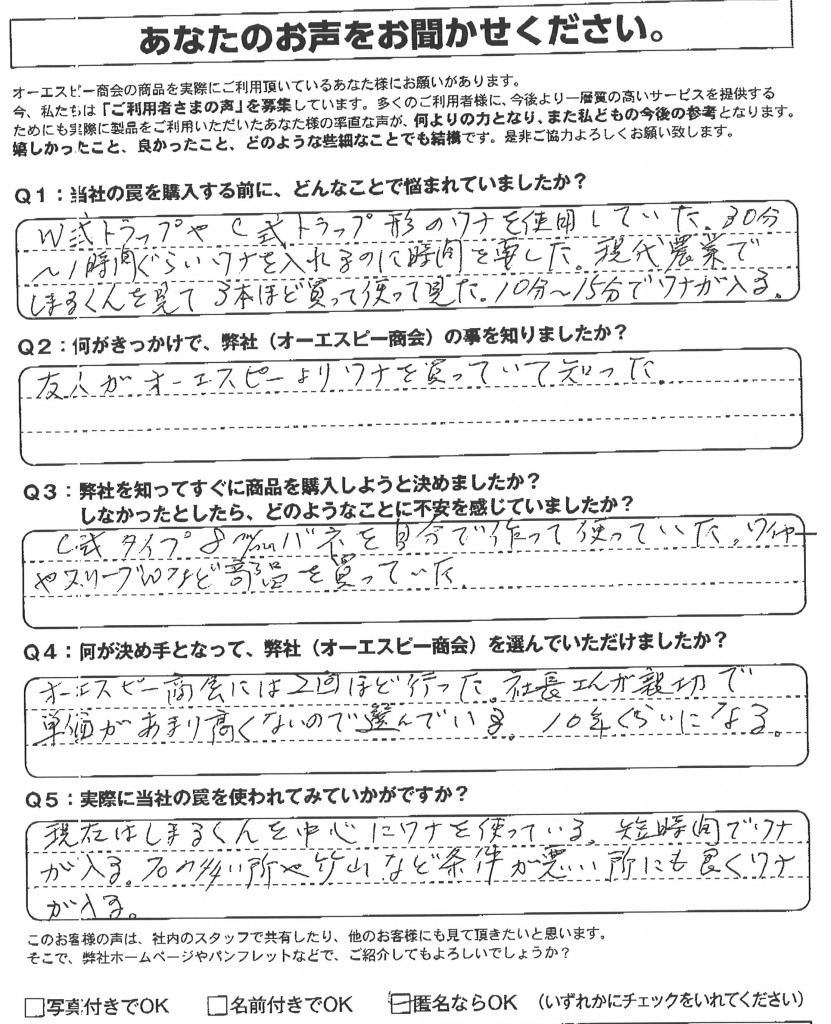 あなたのお声をお聞かせください。
オーエスピー商会の商品を実際にご利用頂いているあなた様にお願いがあります。
今、私たちは「ご利用者さまの声」を募集しています。多くのご利用者様に、今後より一層質の高いサービスを提供する
ためにも実際に製品をご利用いただいたあなた様の率直な声が、何よりの力となり、また私どもの今後の参考となります。
嬉しかったこと、良かったこと、どのような些細なことでも結構です。是非ご協力よろしくお願い致します。
Q1:当社の罠を購入する前に、どんなことで悩まれていましたか?
W式トラップや C式トラップ形のワナを使用していた。30分
~1時間ぐらいワナを入れるのに時間を要した。現代農業で
しまるくんを見て 3本ほど買って使って見た。10分~15分でワナが入る。
Q2:何がきっかけで、弊社(オーエスピー商会)の事を知りましたか?
友人がオーエスピーよりワナを買っていて知った。
Q3:弊社を知ってすぐに商品を購入しようと決めましたか?
しなかったとしたら、どのようなことに不安を感じていましたか?
C式タイプ8m/mバネを自分で作って使っていた。ワイヤー
やスリーブなど部品を買っていた。
Q4:何が決め手となって、弊社(オーエスピー商会)を選んでいただけましたか?
オーエスピー商会には2回ほど行った。社長さんが親切で
単価があまり高くないので選んでいる。10年ぐらいになる。
Q5:実際に当社の罠を使われてみていかがですか?
現在はしまるくんを中心にワナを使っている。短時間でワナ
が入る。石の多い所や竹山など条件が悪い所にも良くワナ
が入る。
このお客様の声は、社内のスタッフで共有したり、他のお客様にも見て頂きたいと思います。
そこで、弊社ホームページやパンフレットなどで、ご紹介してもよろしいでしょうか?
□写真付きでOK □名前付きでOK □匿名ならOK (いずれかにチェックをいれてください)